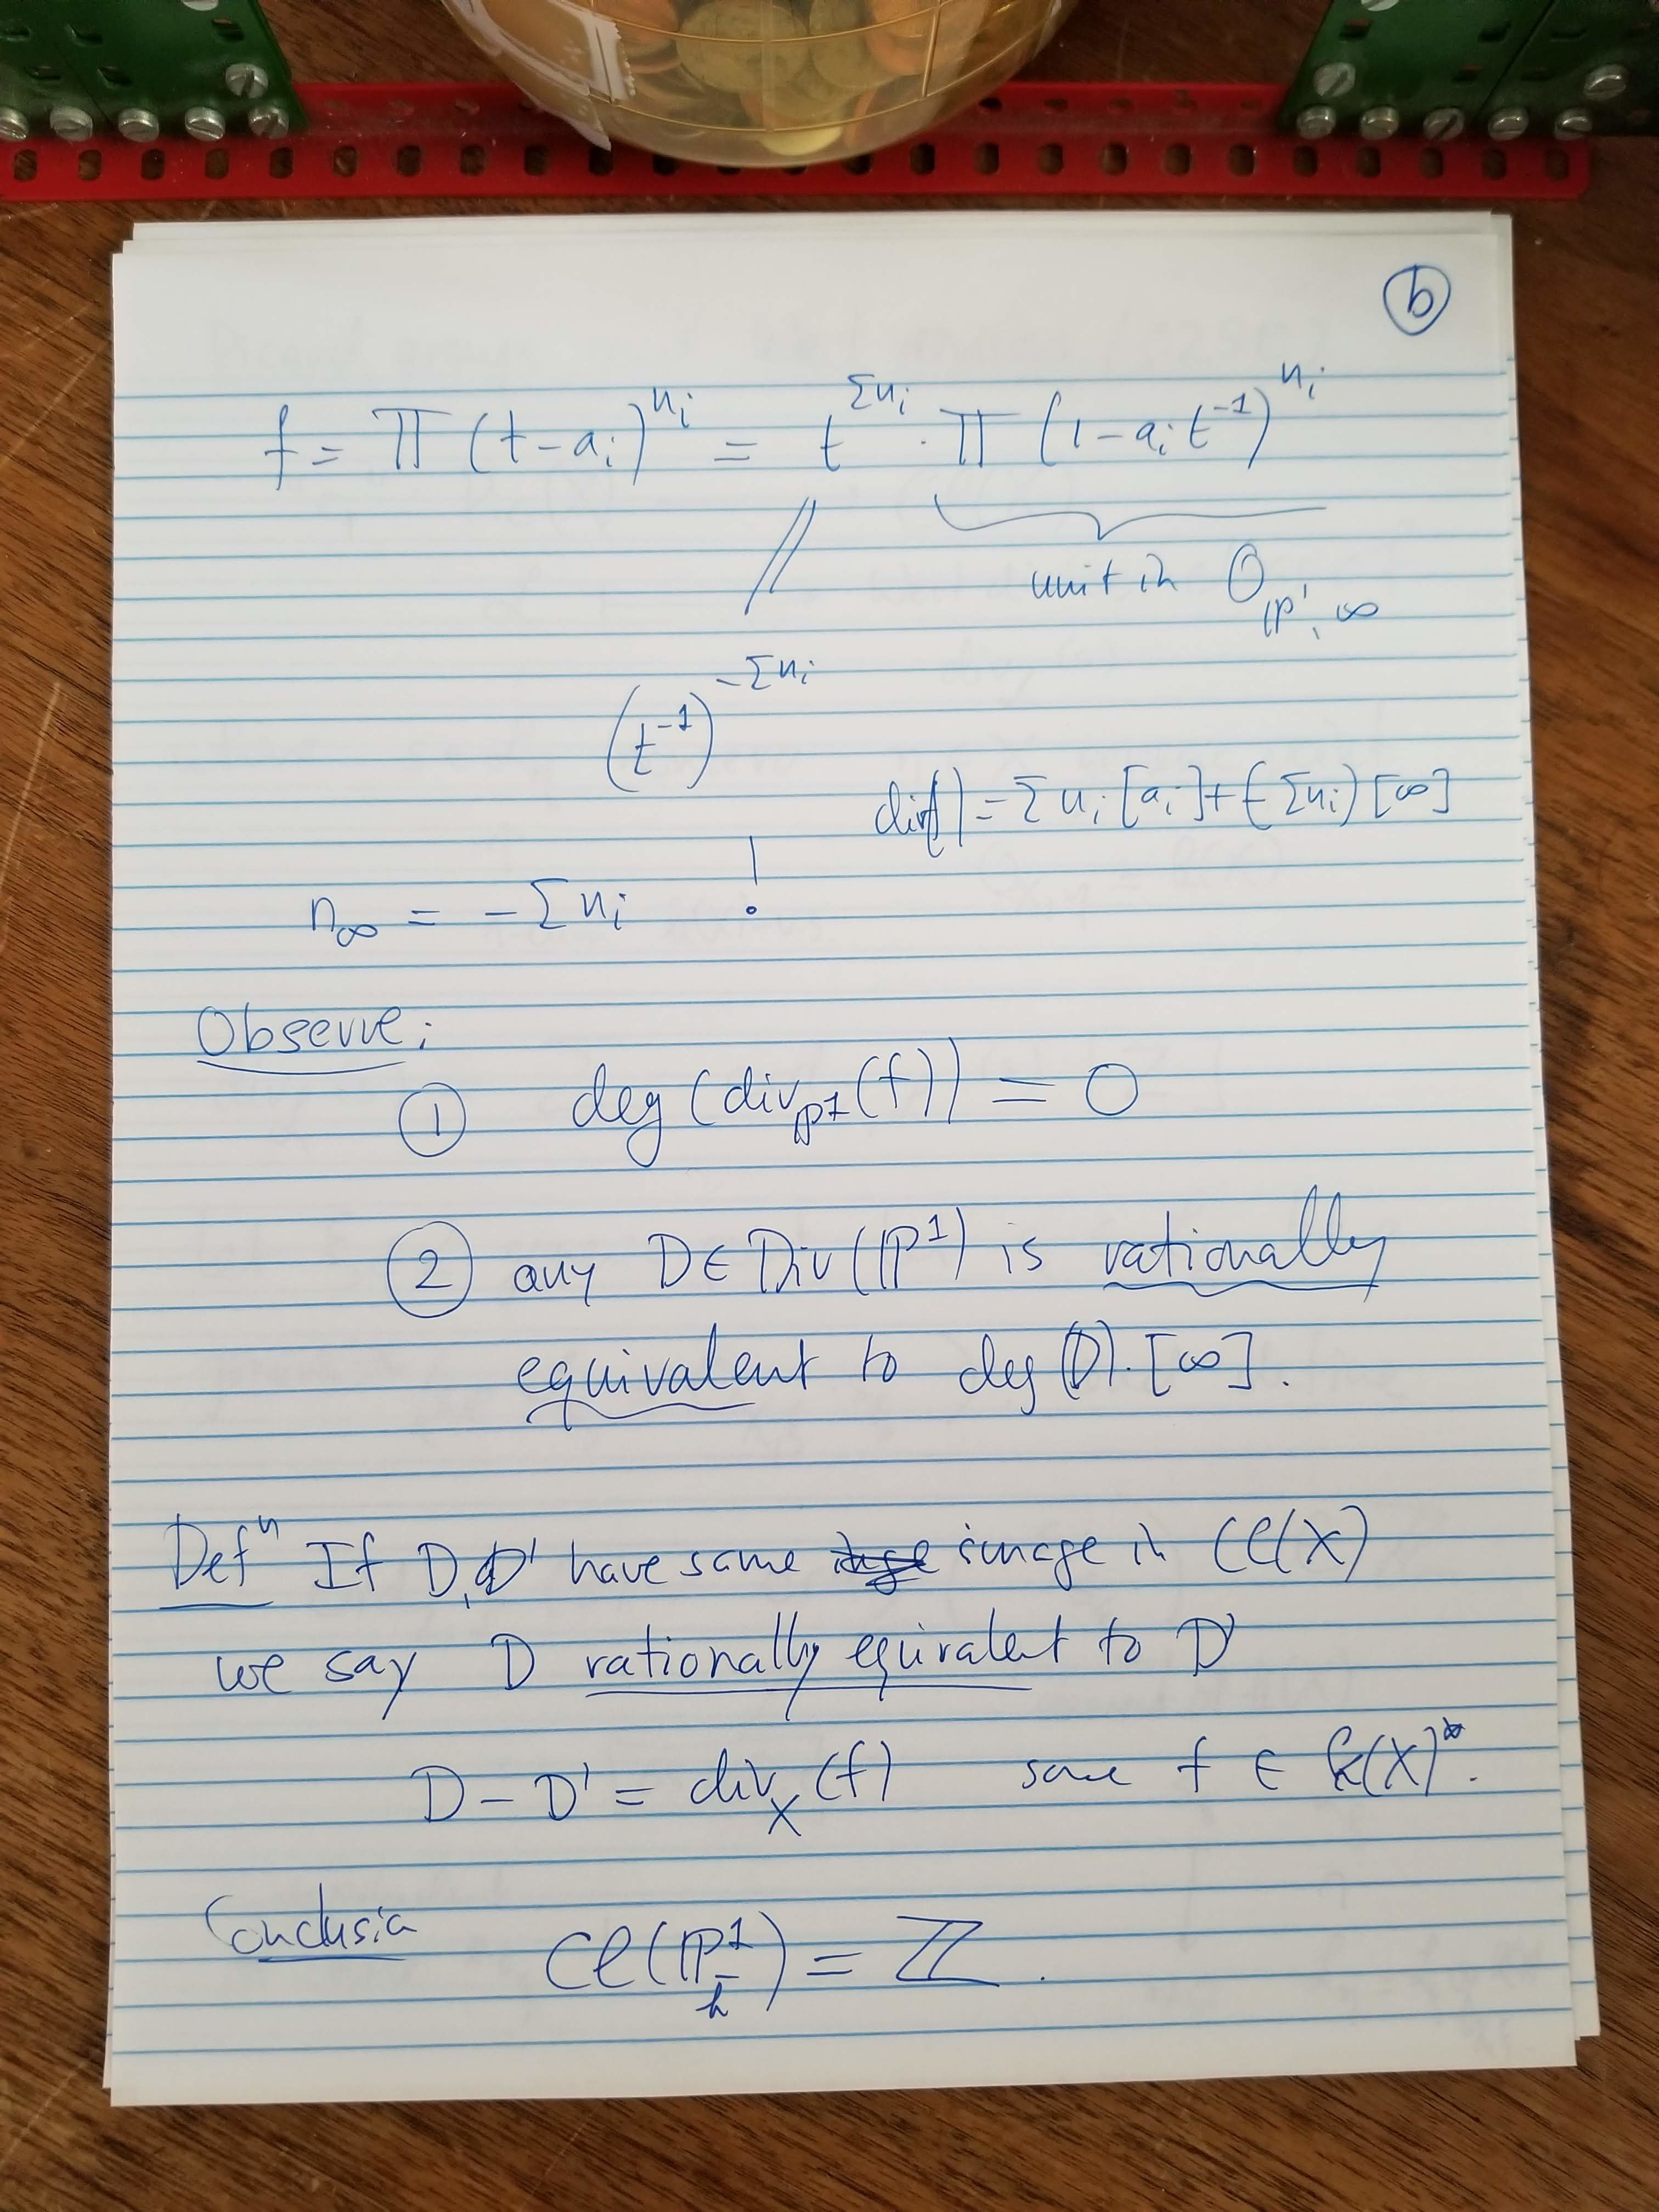 6
f = Π (t-a_i)^{n_i} = t^{Σn_i} · Π (1-a_i t^{-1})^{n_i}
//
unit in O_{ℙ^1, ∞}
(t^{-1})^{-Σn_i}
div(f) = Σ n_i [a_i] + (-Σn_i) [∞]
n_∞ = - Σ n_i !
Observe:
① deg (div_{ℙ^1}(f)) = 0
② any D ∈ Div(ℙ^1) is rationally
equivalent to deg(D)·[∞].
Def^n If D, D' have same image in Cl(X)
we say D rationally equivalent to D'
D - D' = div_X (f) some f ∈ k(X)^*.
Conclusion Cl(ℙ^1_k) = ℤ.